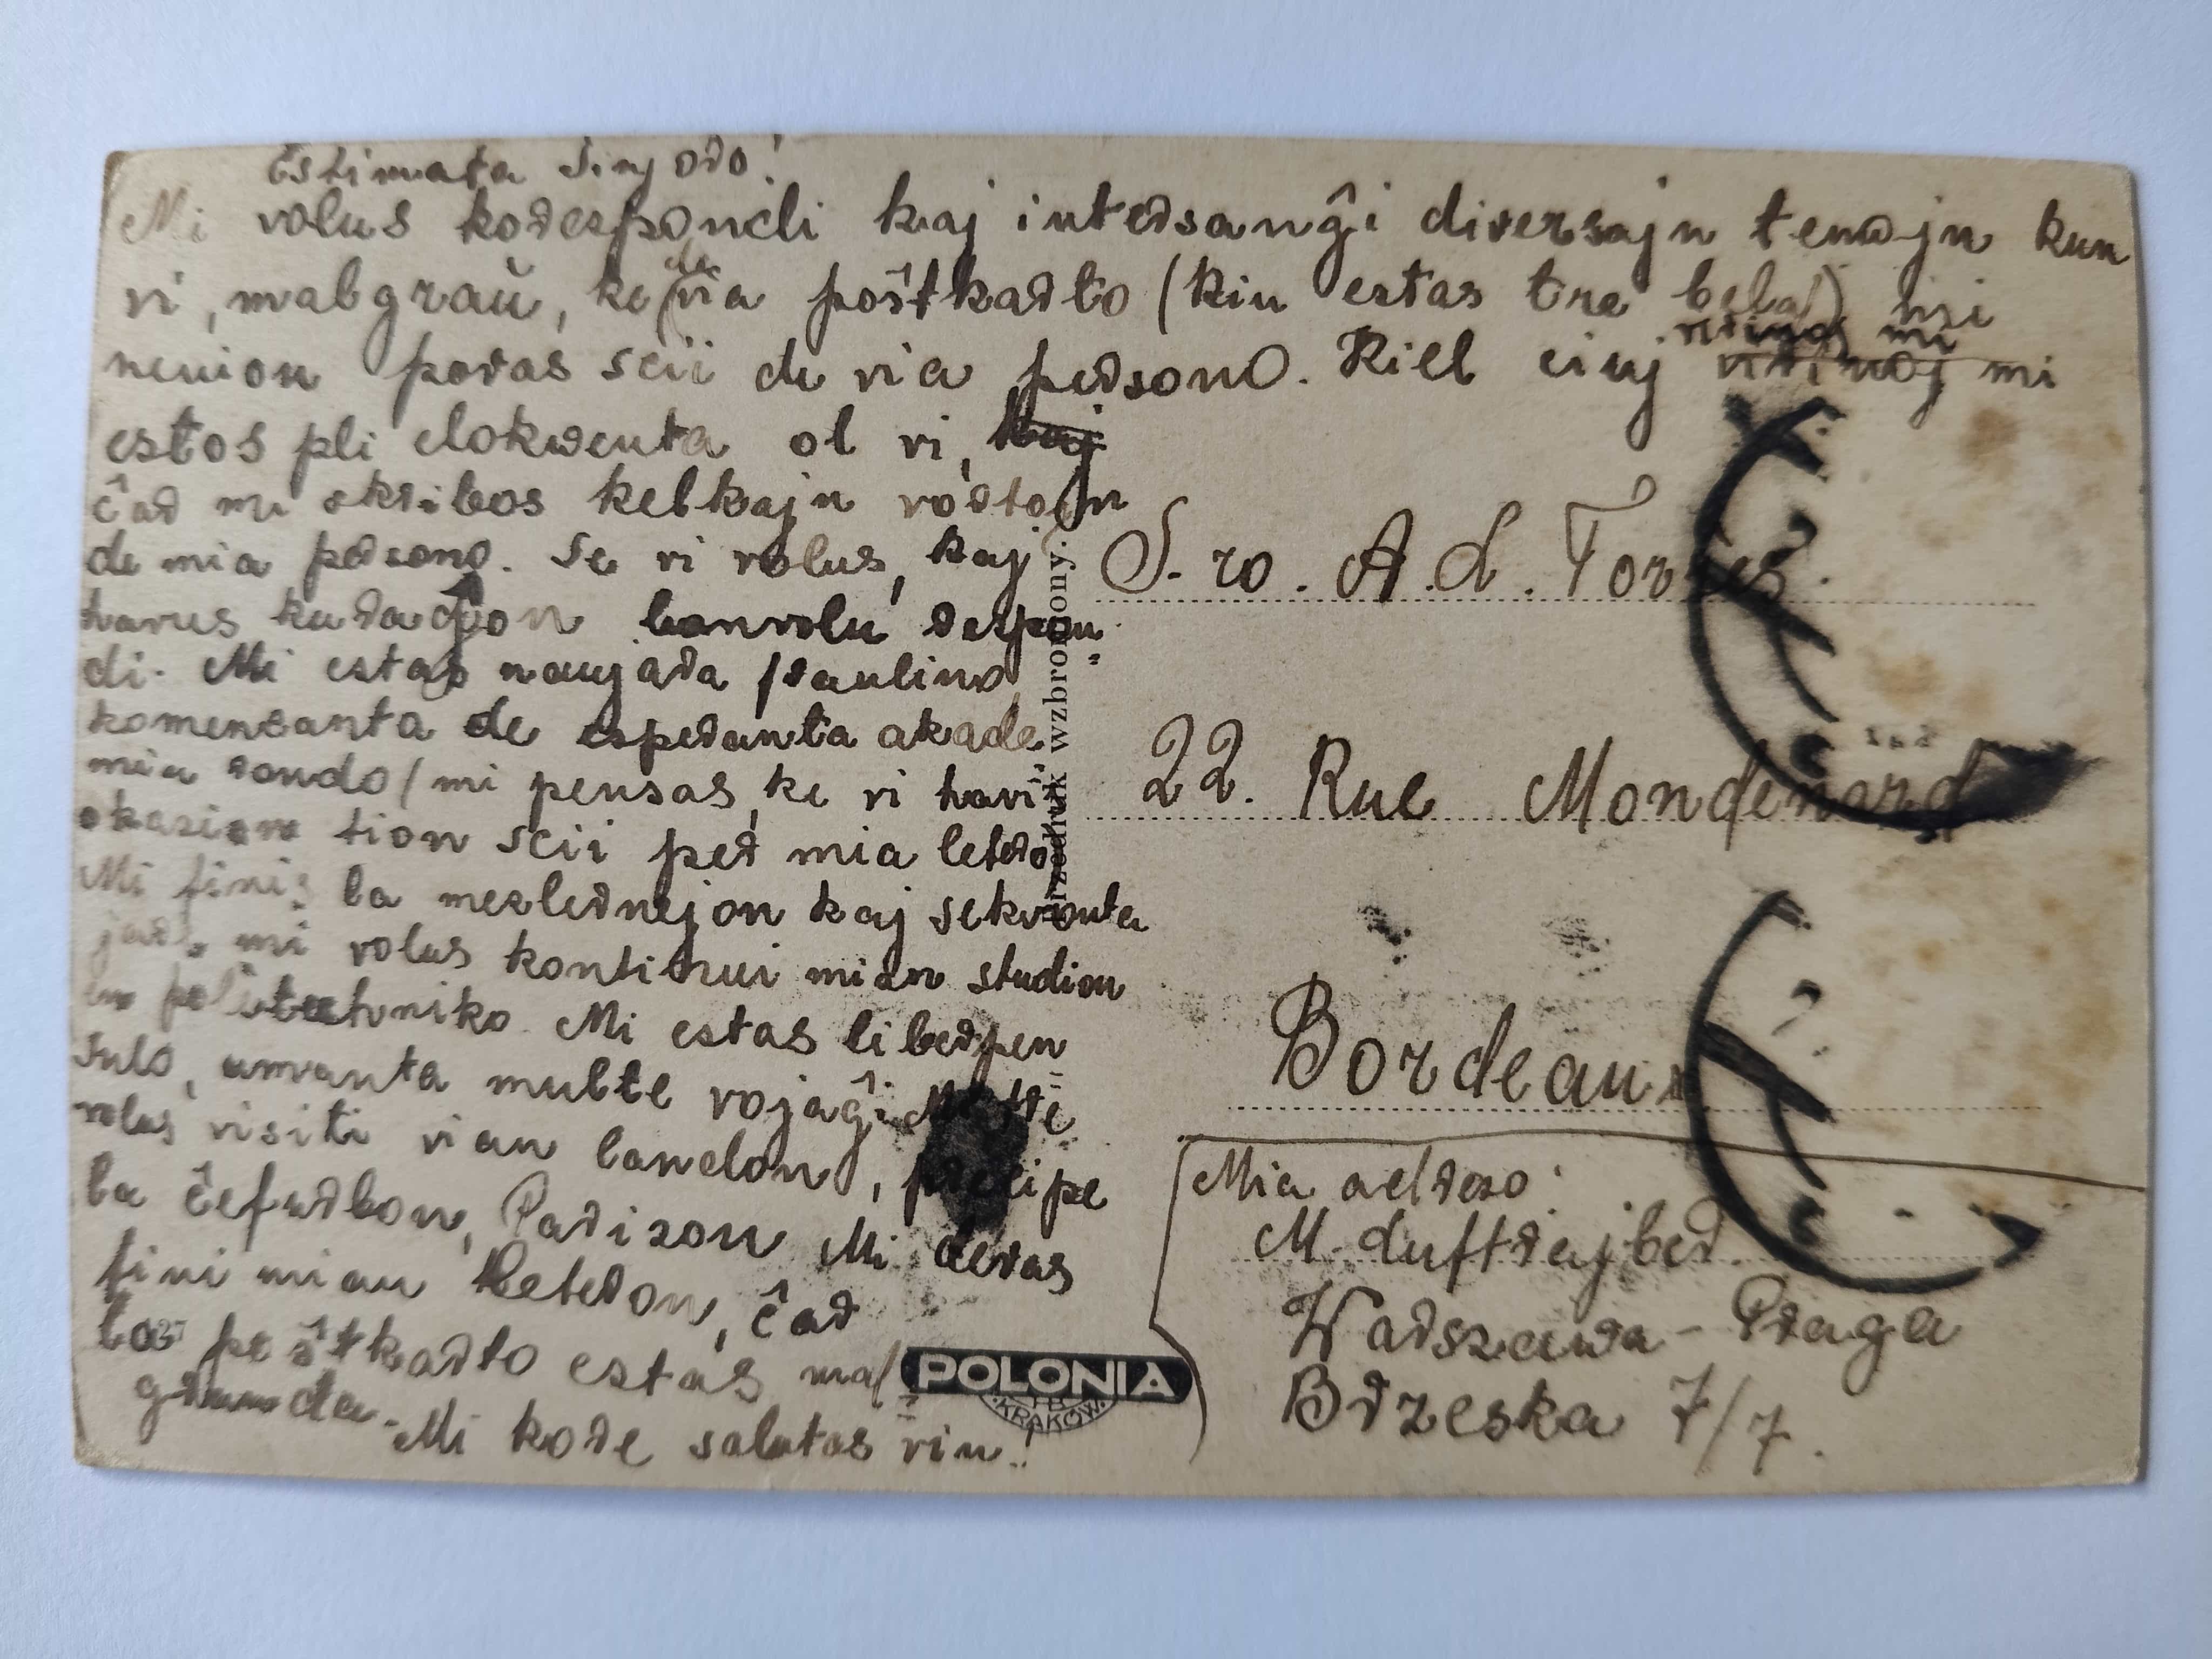 Estimata Sinjoro!
Mi volus korespondi kaj interŝanĝi diversajn temojn kun
vi, malgraŭ, ke de via poŝtkarto (kiu estas tre bela) mi
nenion povas scii de via persono. Kiel ĉiuj virinoj mi
estos pli elokwenta ol vi, kaj
ĉar mi skribos kelkajn vortojn
de mia persono. Se vi volus, kaj
havus kuraĝon bonvolu respon
di. Mi estas naŭjara fraulino
komencanta de esperanta akade
mia rondo / mi pensas, ke vi havis
okazion tion scii per mia letero
Mi finis la mezlernejon kaj sekvonta
jaro mi volus kontinui mian studion
en politechniko. Mi estas liberpen
sulo, amanta multe vojaĝi.
volas visiti vian landon, precipe
la ĉefurbon, Parizon. Mi devas
fini mian leteron, ĉar
la poŝtkarto estas mal
granda. Mi kore salutas vin!
S-ro. A. L. Torres.
22. Rue Mondenard
Bordeaux
Mia adreso:
M. Luftrajber
Warszawa - Praga
Brzeska 7/7.
Przedruk wzbroniony.
POLONIA
KRAKÓW